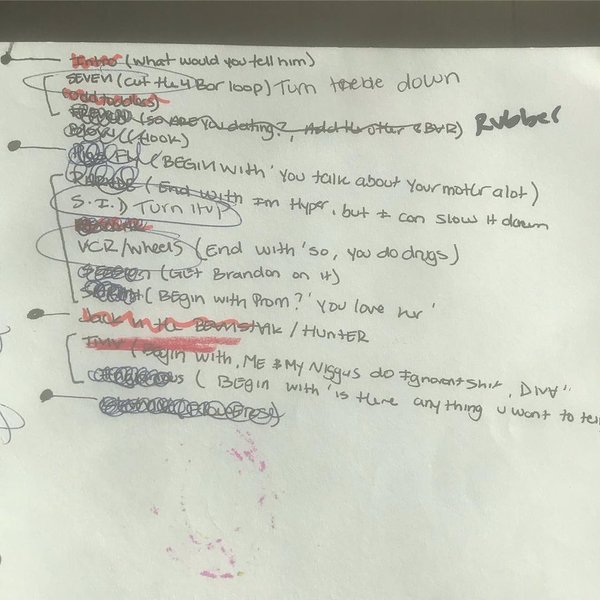 Intro (what would you tell him)
SEVEN (cut the 4 Bar loop) Turn treble down
odd toddlers)
(so are you dating?, Add the other 8 BAR) Rubber
(Hook)
Fly (BEGIN with 'You talk about your mother alot)
PARADE (End with I'm Hyper, but I can slow it down
S.I.D Turn it up
VCR/wheels (End with 'so, you do drugs)
(Get Brandon on it)
(Begin with Prom? 'You love her'
Jack in the Beanstalk / HUNTER
(Begin with, ME & My Niggas do Ignorant shit, DIVA"
( BEgin with 'is there anything u want to tell